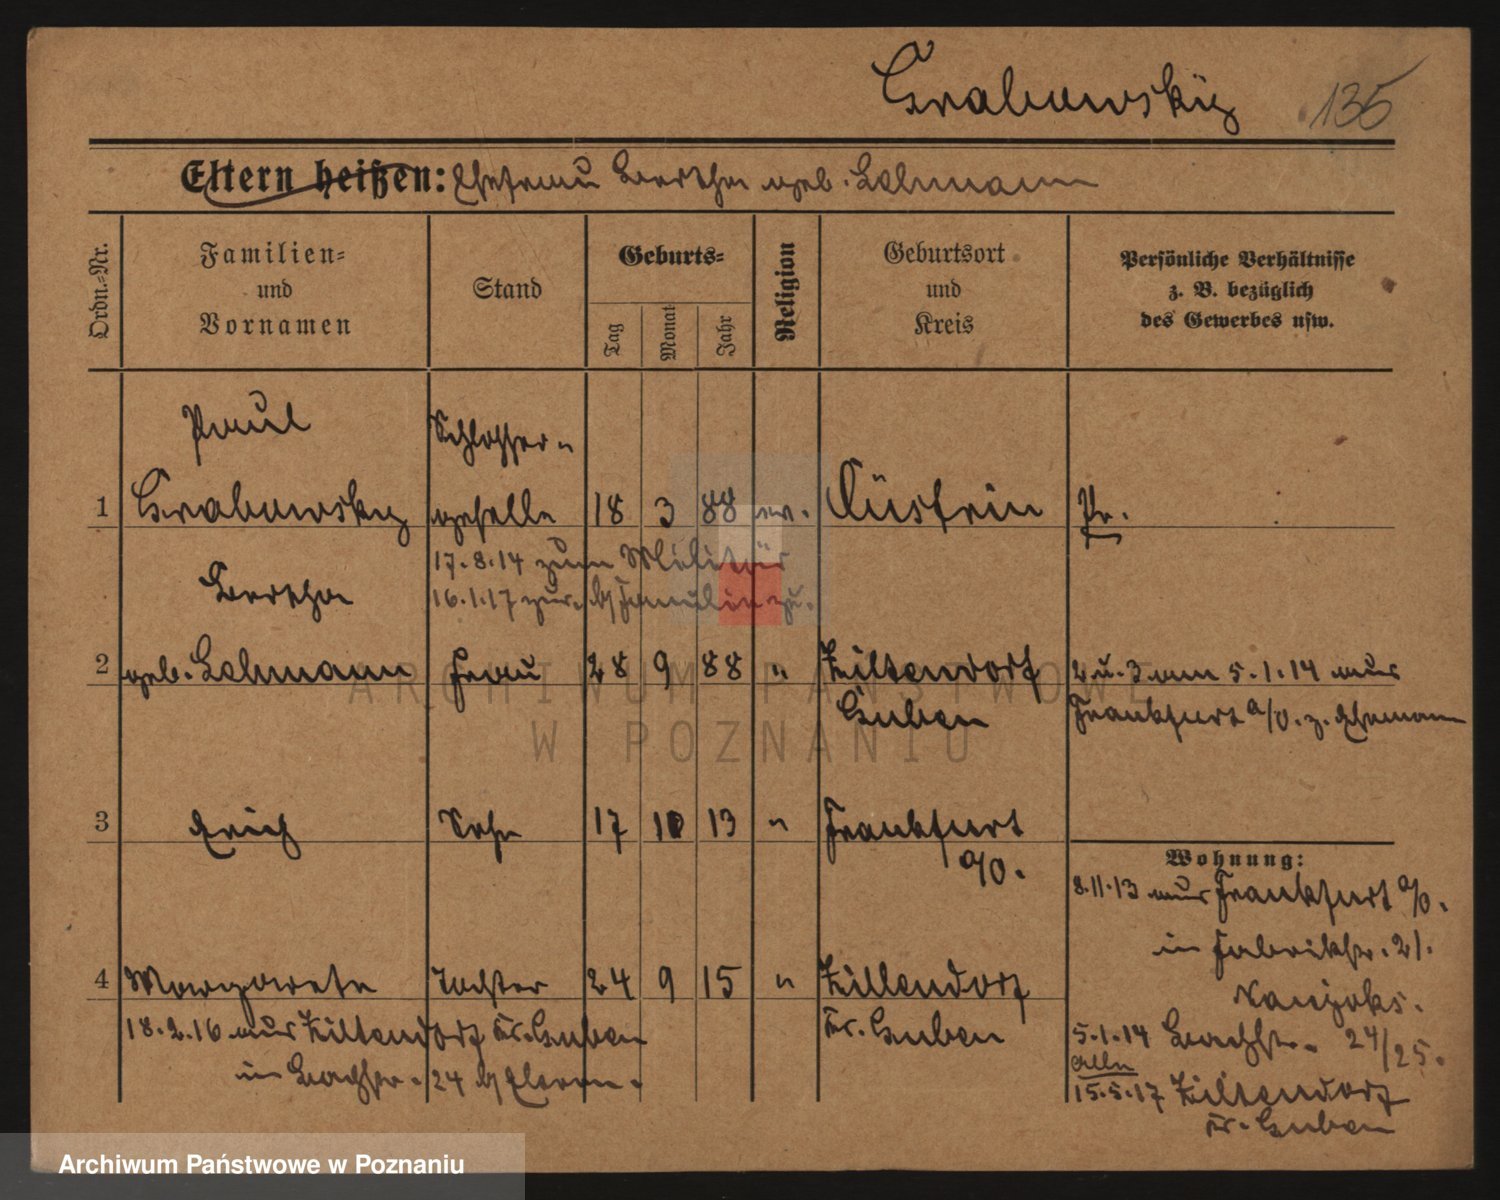 Grabowsky 135
Eltern heißen: Ehefrau Bertha geb. Lehmann
Ordn.-Nr.
Familien-
und
Vornamen
Stand
Geburts-
Tag
Monat
Jahr
Religion
Geburtsort
und
Kreis
Persönliche Verhältnisse
z. B. bezüglich
des Gewerbes usw.
Paul Schlosser-
1 Grabowsky geselle 18 3 88 ev. Cüstrin Pr.
17.8.14 zum Militär
Bertha 16.1.17 zur. b/
2 geb. Lehmann Frau 28 9 88 " Ziltendorf 2 u. 3 am 5.1.14 aus
Guben Frankfurt a/O. z. Ehemann
3 Erich Sohn 17 10 13 " Frankfurt
a/O.
Wohnung:
8.11.13 aus Frankfurt a/O.
in Fabrikstr. 21.
4 Margarete Tochter 24 9 15 " Ziltendorf
18.2.16 aus Ziltendorf Kr. Guben Kr. Guben
5.1.14 Bachstr. 24/25.
in Bachstr. 24 b/ Eltern.
Alle
15.5.17 Ziltendorf
Kr. Guben
ARCHIWUM PAŃSTWOWE
W POZNANIU
Archiwum Państwowe w Poznaniu